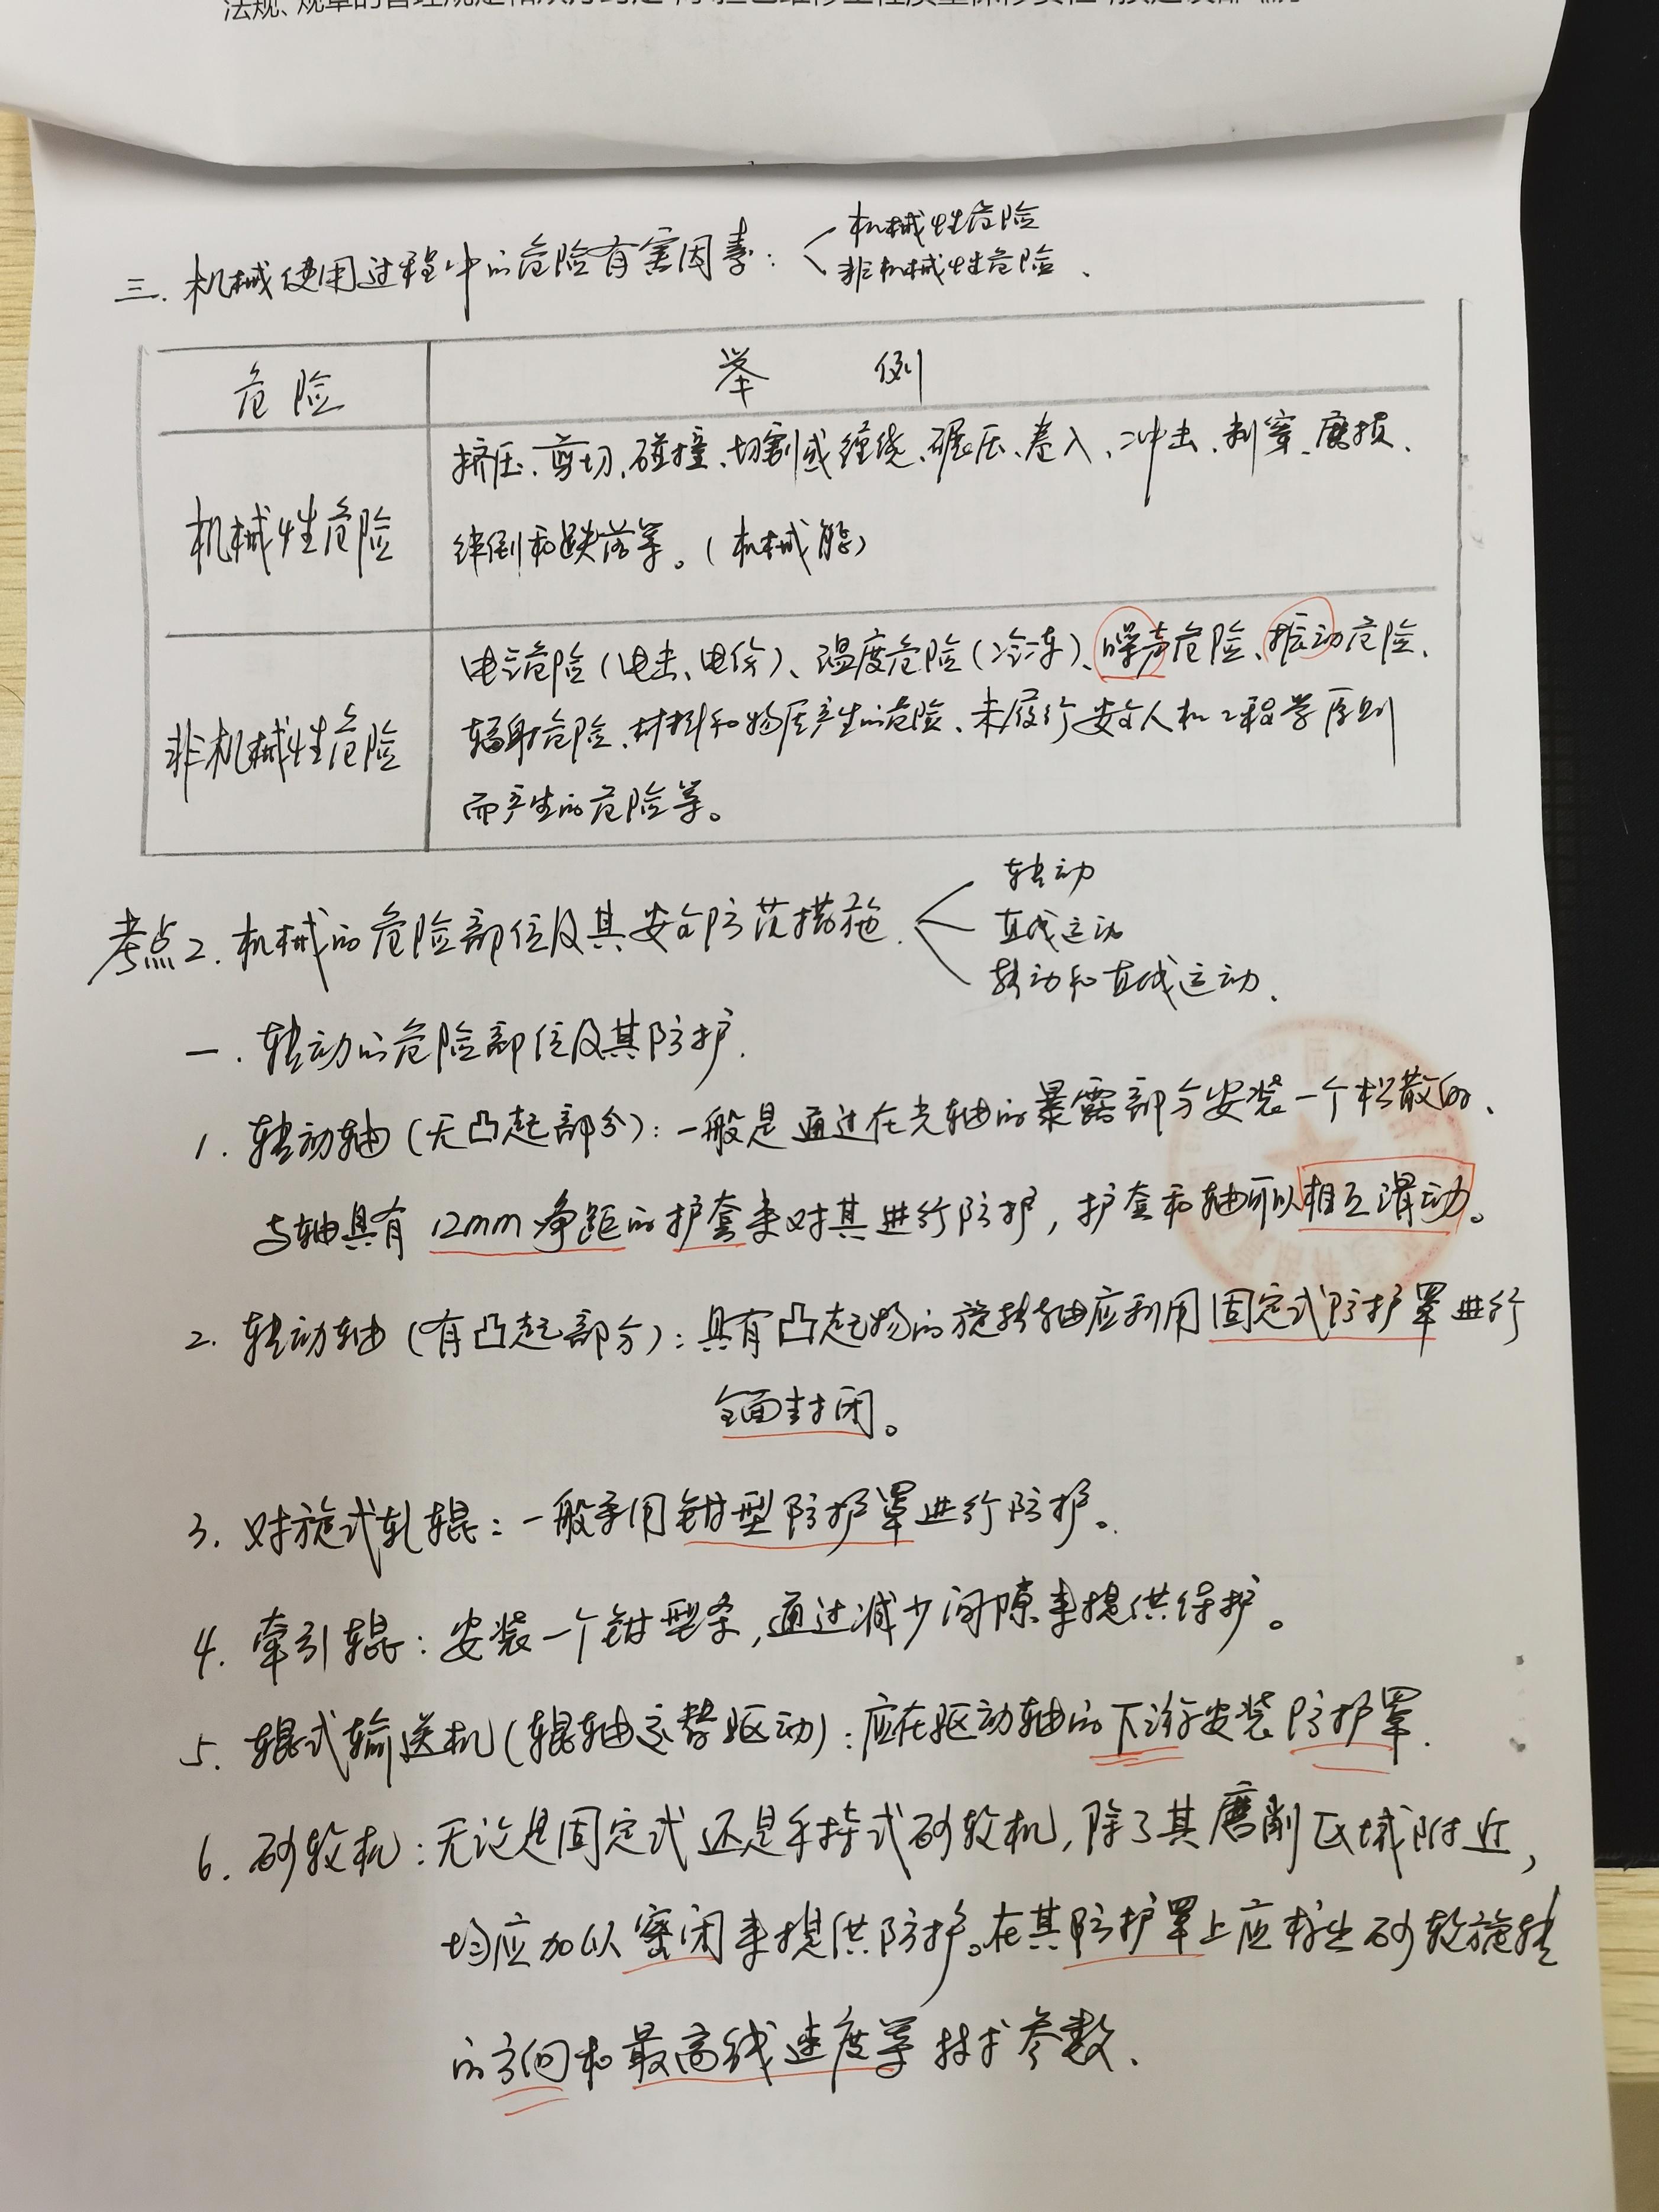 三. 机械使用过程中的危险有害因素:
机械性危险
非机械性危险.
危险
举 例
机械性危险
挤压、剪切、碰撞、切割或缠绕、碾压、卷入、冲击、刺穿、磨损、
绊倒和跌落等。(机械能)
非机械性危险
电气危险(电击、电伤)、温度危险(冷冻)、噪声危险、振动危险、
辐射危险、材料和物质产生的危险、未履行安全人机工程学原则
而产生的危险等。
考点2. 机械的危险部位及其安全防范措施.
转动
直线运动
转动和直线运动.
一. 转动的危险部位及其防护.
1. 转动轴(无凸起部分): 一般是通过在光轴的暴露部分安装一个松散的、
与轴具有12mm净距的护套来对其进行防护, 护套和轴可以相互滑动。
2. 转动轴(有凸起部分): 具有凸起物的旋转轴应利用固定式防护罩进行
全面封闭。
3. 对旋式轧辊: 一般采用钳型防护罩进行防护。
4. 牵引辊: 安装一个钳型条, 通过减少间隙来提供保护。
5. 辊式输送机(辊轴交替驱动): 应在驱动轴的下游安装防护罩.
6. 砂轮机: 无论是固定式还是手持式砂轮机, 除了其磨削区域附近,
均应加以密闭来提供防护。在其防护罩上应标出砂轮旋转
的方向和最高线速度等技术参数.